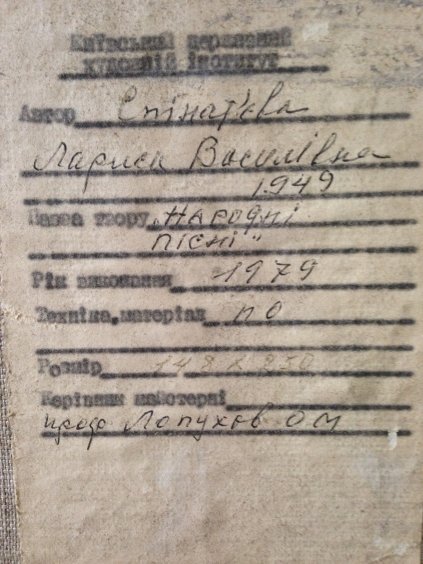 Київський державний
художній інститут
Автор Єпінат'єва
Лариса Василівна
1949
Назва твору "НАРОДНІ
ПІСНІ"
Рік виконання 1979
Техніка, матеріал п о
Розмір 148 х 230
Керівник майстерні
проф Лопухов О М